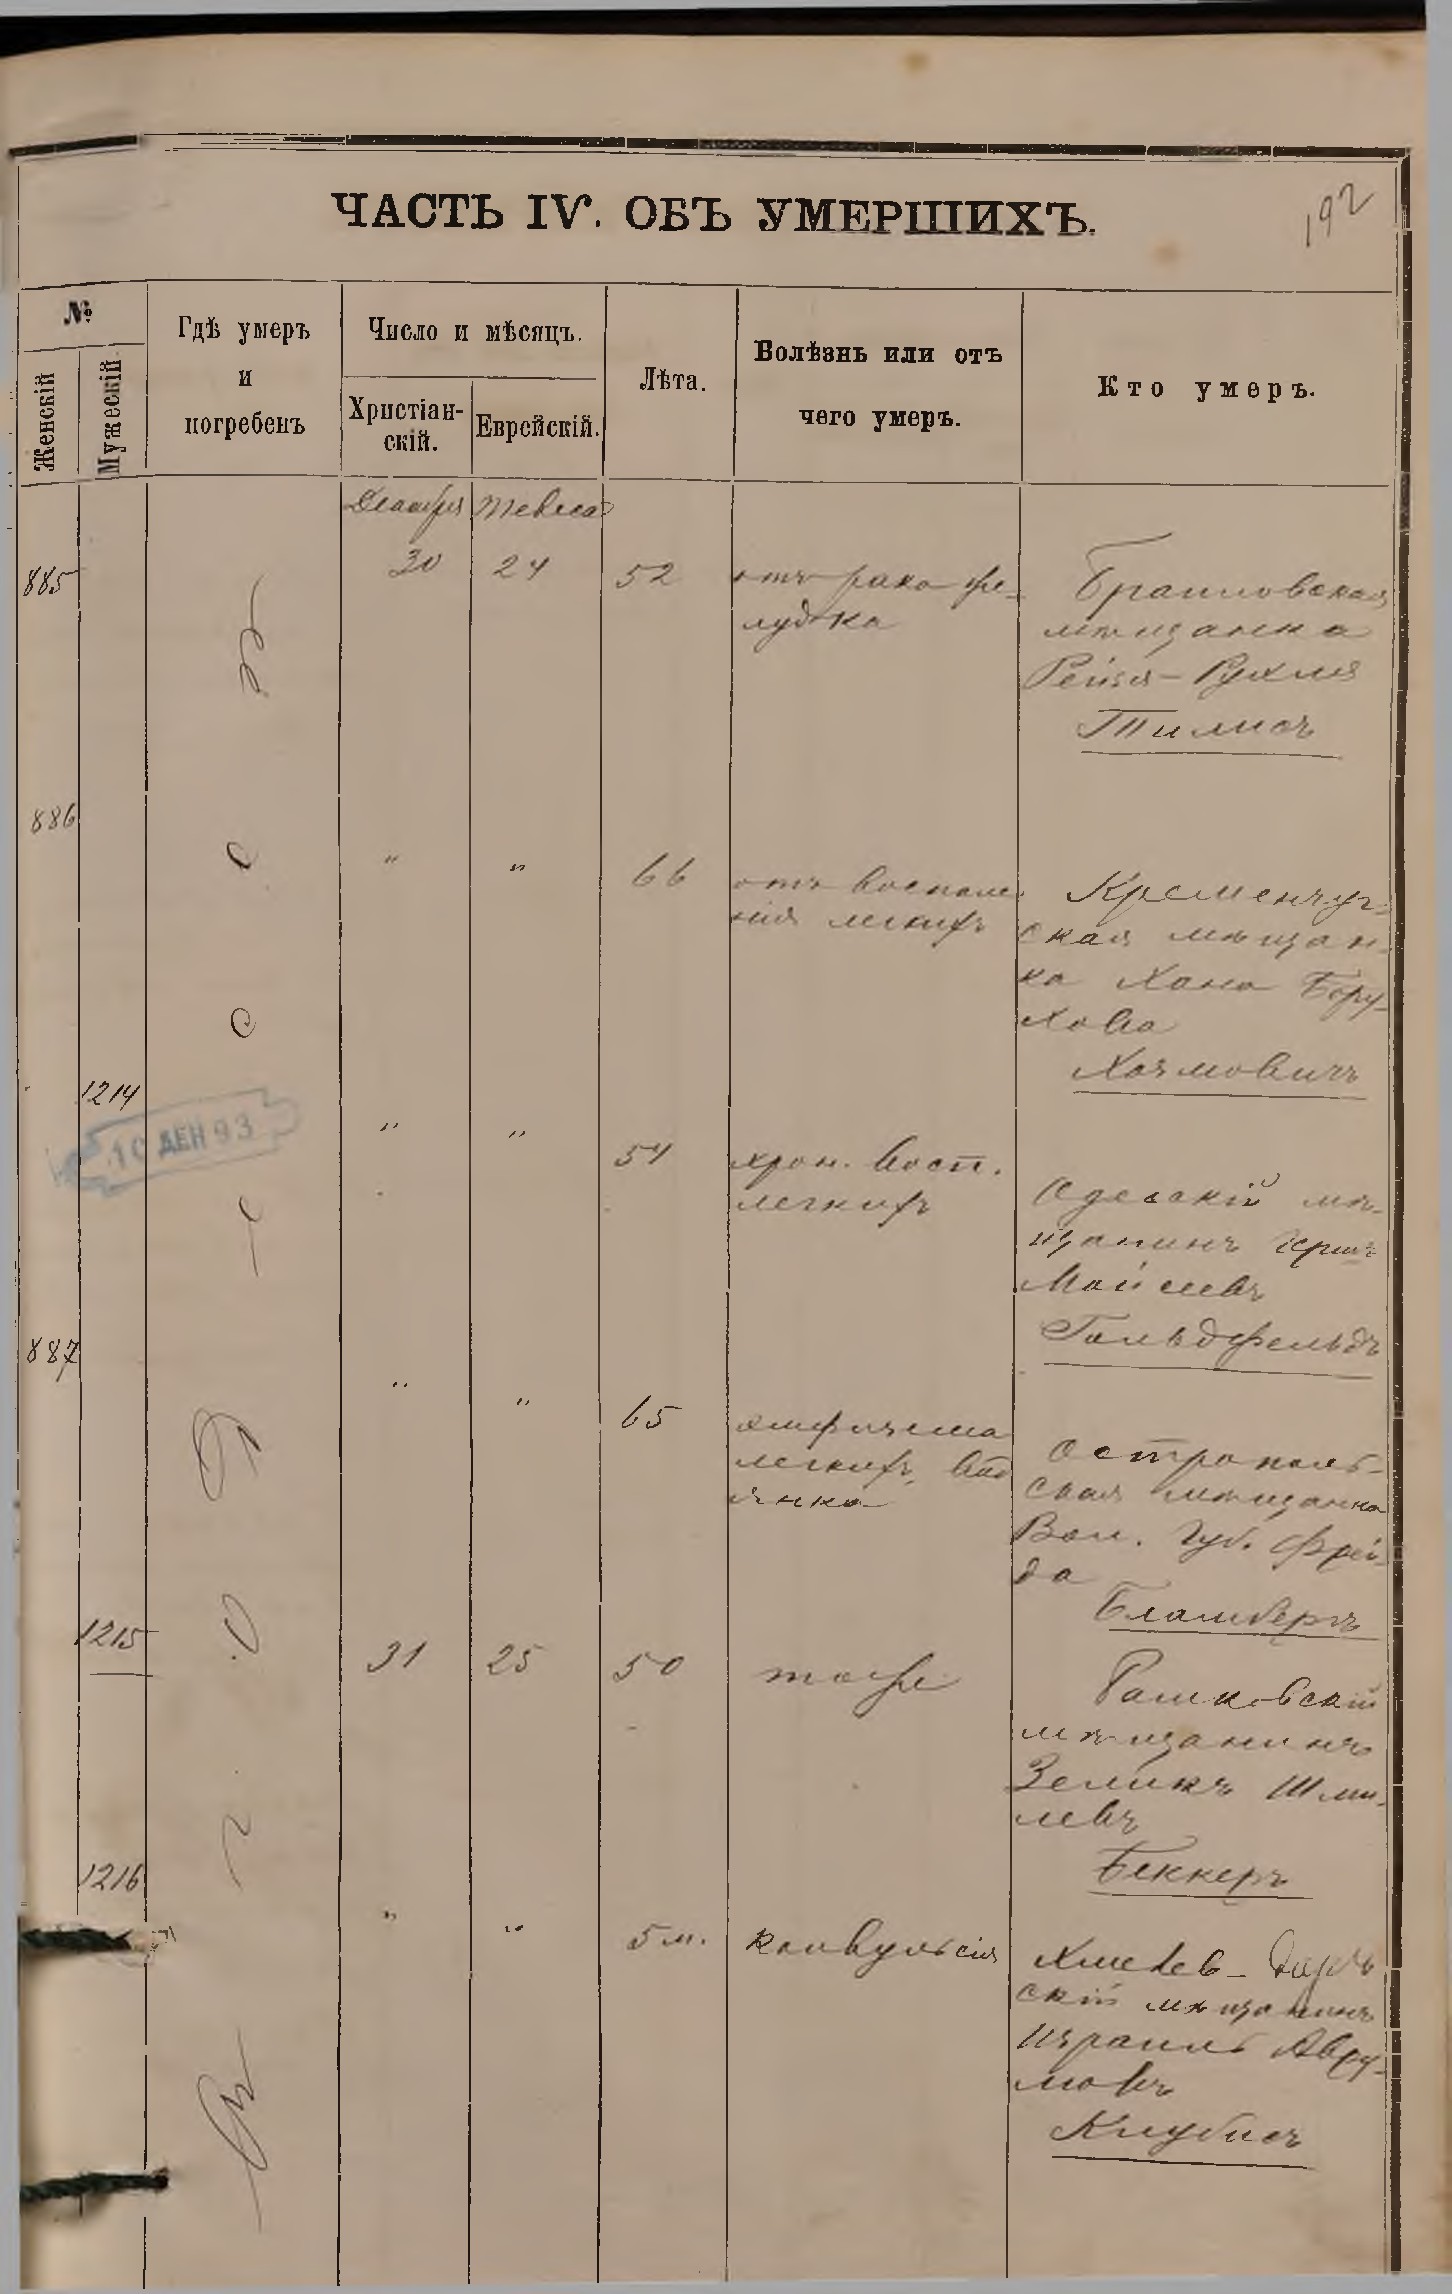 192
ЧАСТЬ IV. ОБЪ УМЕРШИХЪ.
№
Женскій
Мужескій
Гдѣ умеръ
и
погребенъ
Число и мѣсяцъ.
Христіан-
скій.
Еврейскій.
Лѣта.
Болѣзнь или отъ
чего умеръ.
Кто умеръ.
Декабря Тевеса
885 30 24 52 отъ рака же-
лудка
Браиловская
мѣщанка
Рейзя-Рухля
Тилисъ
886 " " 66 отъ воспале-
нія легкихъ
Кременчуг-
ская мѣщан-
ка Хана Бору-
хова
Хаймовичъ
1214 " " 54 хрон. восп.
легкихъ
Одесскій мѣ-
щанинъ Гершъ
Мойсевъ
Гольдфельдъ
10 ДЕН 93
887 " " 65 эмфизема
легкихъ,
Острополь-
ская мѣщанка
Вол. Губ. Фрей-
да
Бламбергъ
1215 31 25 50 тоже
Рашковскій
мѣщанинъ
Зеликъ Шми-
левъ
Беккеръ
1216 " " 5 м. конвульсія
скій мѣщанинъ
Израиль Авру-
мовъ
Клубисъ
Въ г. Одессѣ